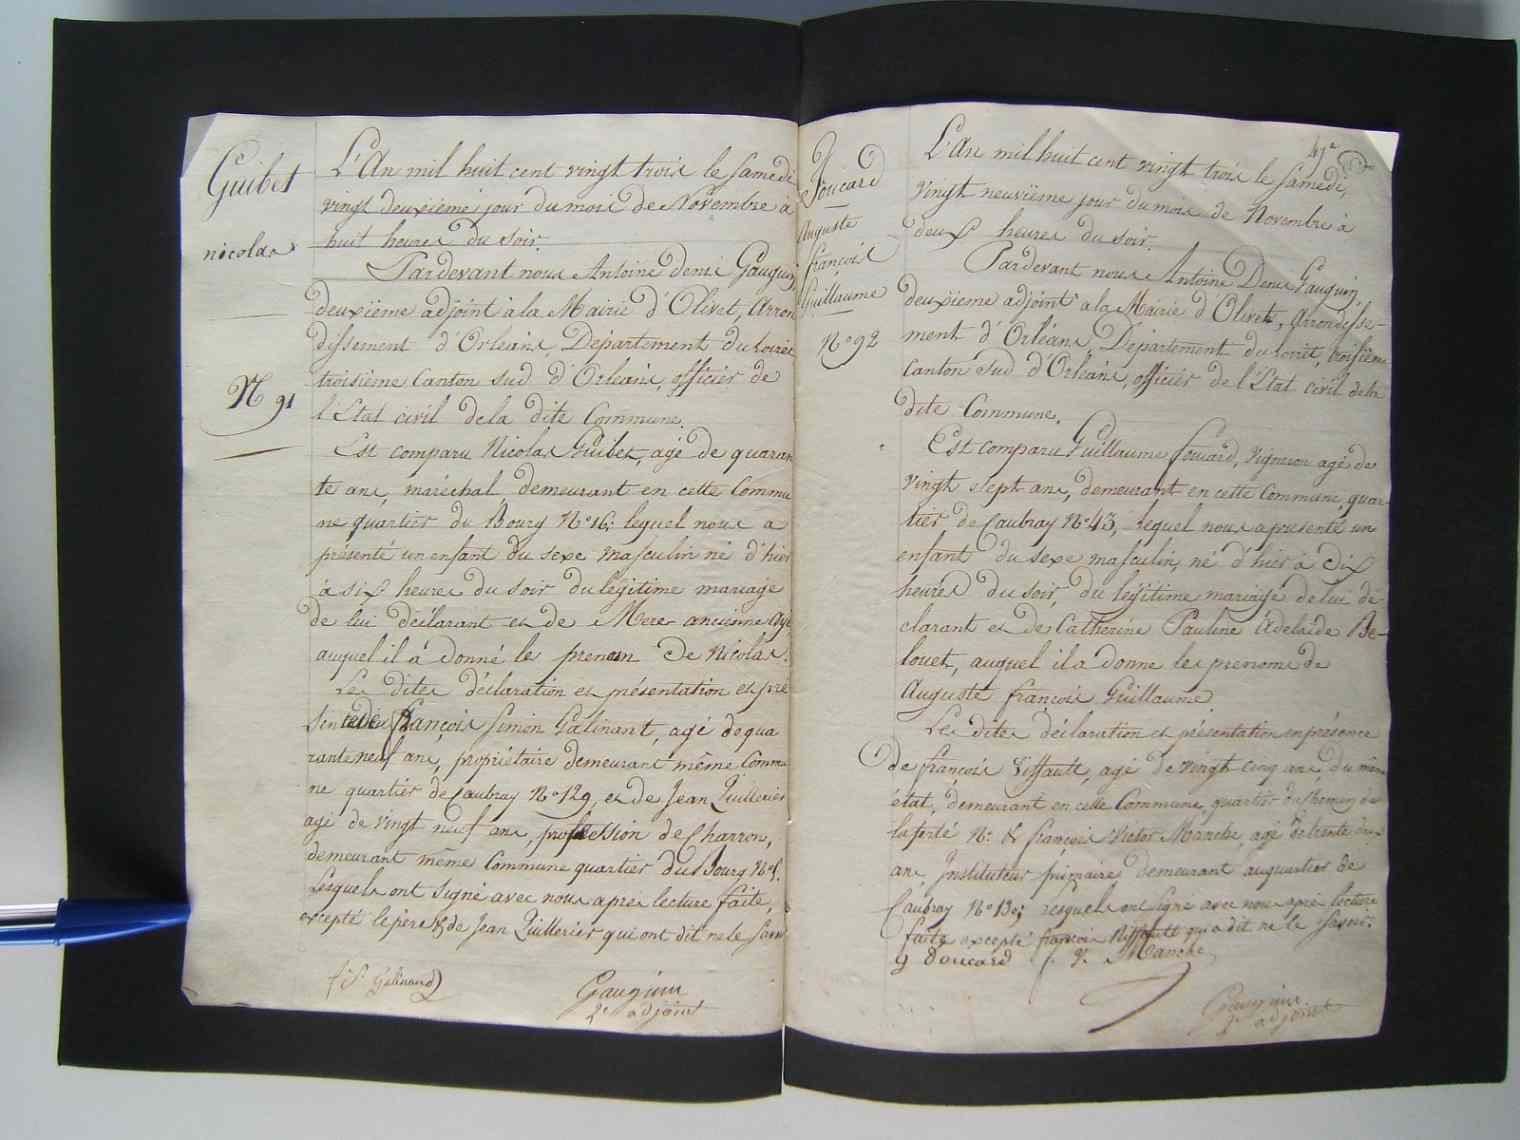 Guibet
nicolas
N 91
L'An mil huit cent vingt trois le samedi
vingt deuxième jour du mois de Novembre à
huit heures du soir.
Pardevant nous Antoine denis Gauguin,
deuxième adjoint à la Mairie d'Olivet, Arron
dissement d'Orléans, Département du Loiret
troisième Canton sud d'Orleans, officier de
l'Etat civil de la dite Commune.
Est comparu Nicolas Guibet, agé de quaran
te ans, maréchal, demeurant en cette Commu
ne quartier du Bourg N° 16; lequel nous a
présenté un enfant du sexe masculin né d'hier
à six heures du soir du légitime mariage
de lui déclarant et de
auquel il a donné le prenom de Nicolas.
Les dites déclaration et présentation et pré
François Simon Galinant, agé de qua
rante neuf ans, propriétaire demeurant même Commu
ne quartier de Caubray N° 129, et de Jean Quillerier
agé de vingt neuf ans, profession de Charron,
demeurant même Commune quartier du Bourg N°
Lesquels ont signé avec nous après lecture faite,
excepté le père & de Jean Quillerier qui ont dit ne le savoir
f. S. Galinand
Gauguin
2e adjoint
Foucard
Auguste
françois
Guillaume
N° 92
47e
L'An mil huit cent vingt trois le samedi,
vingt neuvième jour du mois de Novembre à
deux heures du soir.
Pardevant nous Antoine Denis Gauguin,
deuxieme adjoint a la Mairie d'Olivet, Arrondisse-
ment d'Orléans, Département du Loiret, troisième
Canton sud d'Orléans, officier de l'Etat civil de la
dite Commune.
Est comparu Guillaume Foucard, vigneron agé de
vingt sept ans, demeurant en cette Commune, quar-
tier de Caubray N° 43, lequel nous a presenté un
enfant du sexe masculin, né d'hier à dix
heures du soir, du légitime mariage de lui dé-
clarant et de Catherine Pauline Adelaide Be-
louet, auquel il a donne les prenoms de
Auguste françois Guillaume
Les dites déclaration et présentation en présence
de françois Viffault, agé de vingt cinq ans, du même
état, demeurant en cette Commune, quartier du Chemin de
la ferté N° & françois Victor Manche, agé de trente
ans, Instituteur primaire demeurant au quartier de
Caubray N° 130; lesquels ont signé avec nous après lecture
faite excepté françois Viffault qui a dit ne le savoir.
g Foucard f. V. Manche
Gauguin
2e adjoint